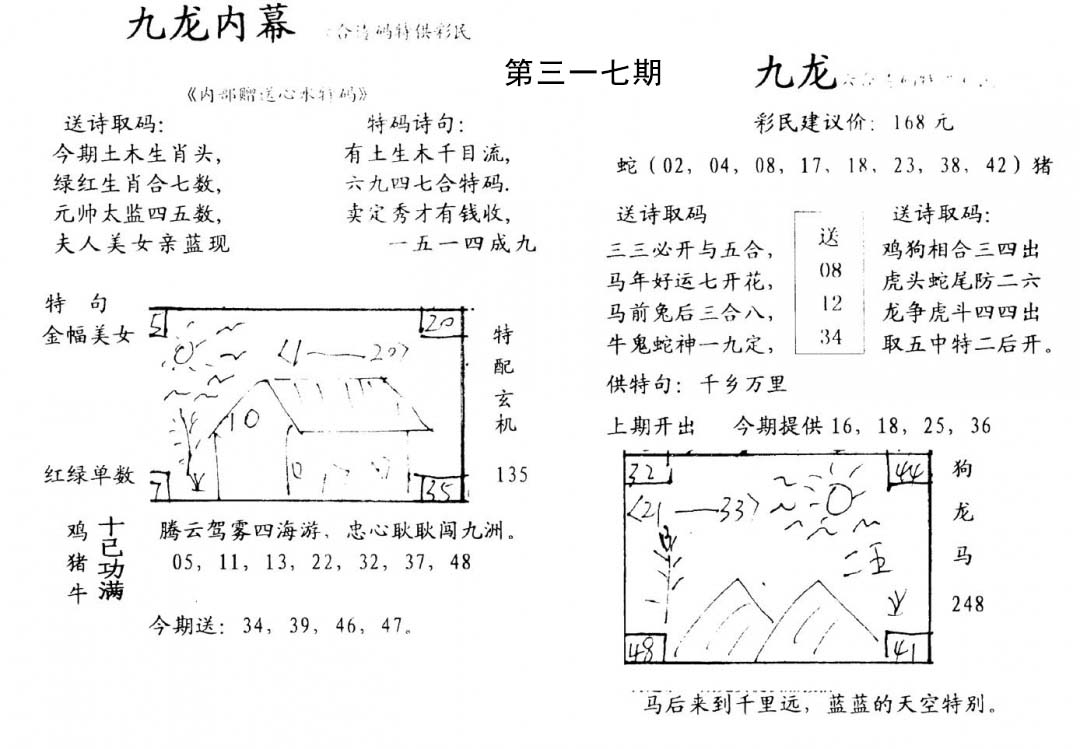 九龙内幕 合 码特供彩民
第三一七期
《内部赠送心水特码》
送诗取码:
今期土木生肖头,
绿红生肖合七数,
元帅太监四五数,
夫人美女亲蓝现
特码诗句:
有土生木千目流,
六九四七合特码.
卖定秀才有钱收,
一五一四成九
特 句
金幅美女
红绿单数
5
20
<1——20>
10
7
35
特配玄机
135
鸡猪牛
十已功满
腾云驾雾四海游, 忠心耿耿闯九洲。
05, 11, 13, 22, 32, 37, 48
今期送: 34, 39, 46, 47。
九龙
彩民建议价: 168 元
蛇 (02, 04, 08, 17, 18, 23, 38, 42) 猪
送诗取码
三三必开与五合,
马年好运七开花,
马前兔后三合八,
牛鬼蛇神一九定,
送
08
12
34
送诗取码:
鸡狗相合三四出
虎头蛇尾防二六
龙争虎斗四四出
取五中特二后开。
供特句: 千乡万里
上期开出 今期提供 16, 18, 25, 36
32
44
<21——33>
二五
48
41
狗
龙
马
248
马后来到千里远, 蓝蓝的天空特别。